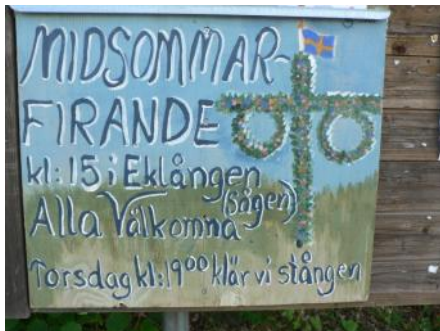 MIDSOMMAR-
FIRANDE
kl: 15 i Eklången
(Sågen)
Alla Välkomna
Torsdag kl: 19⁰⁰ klär vi stången